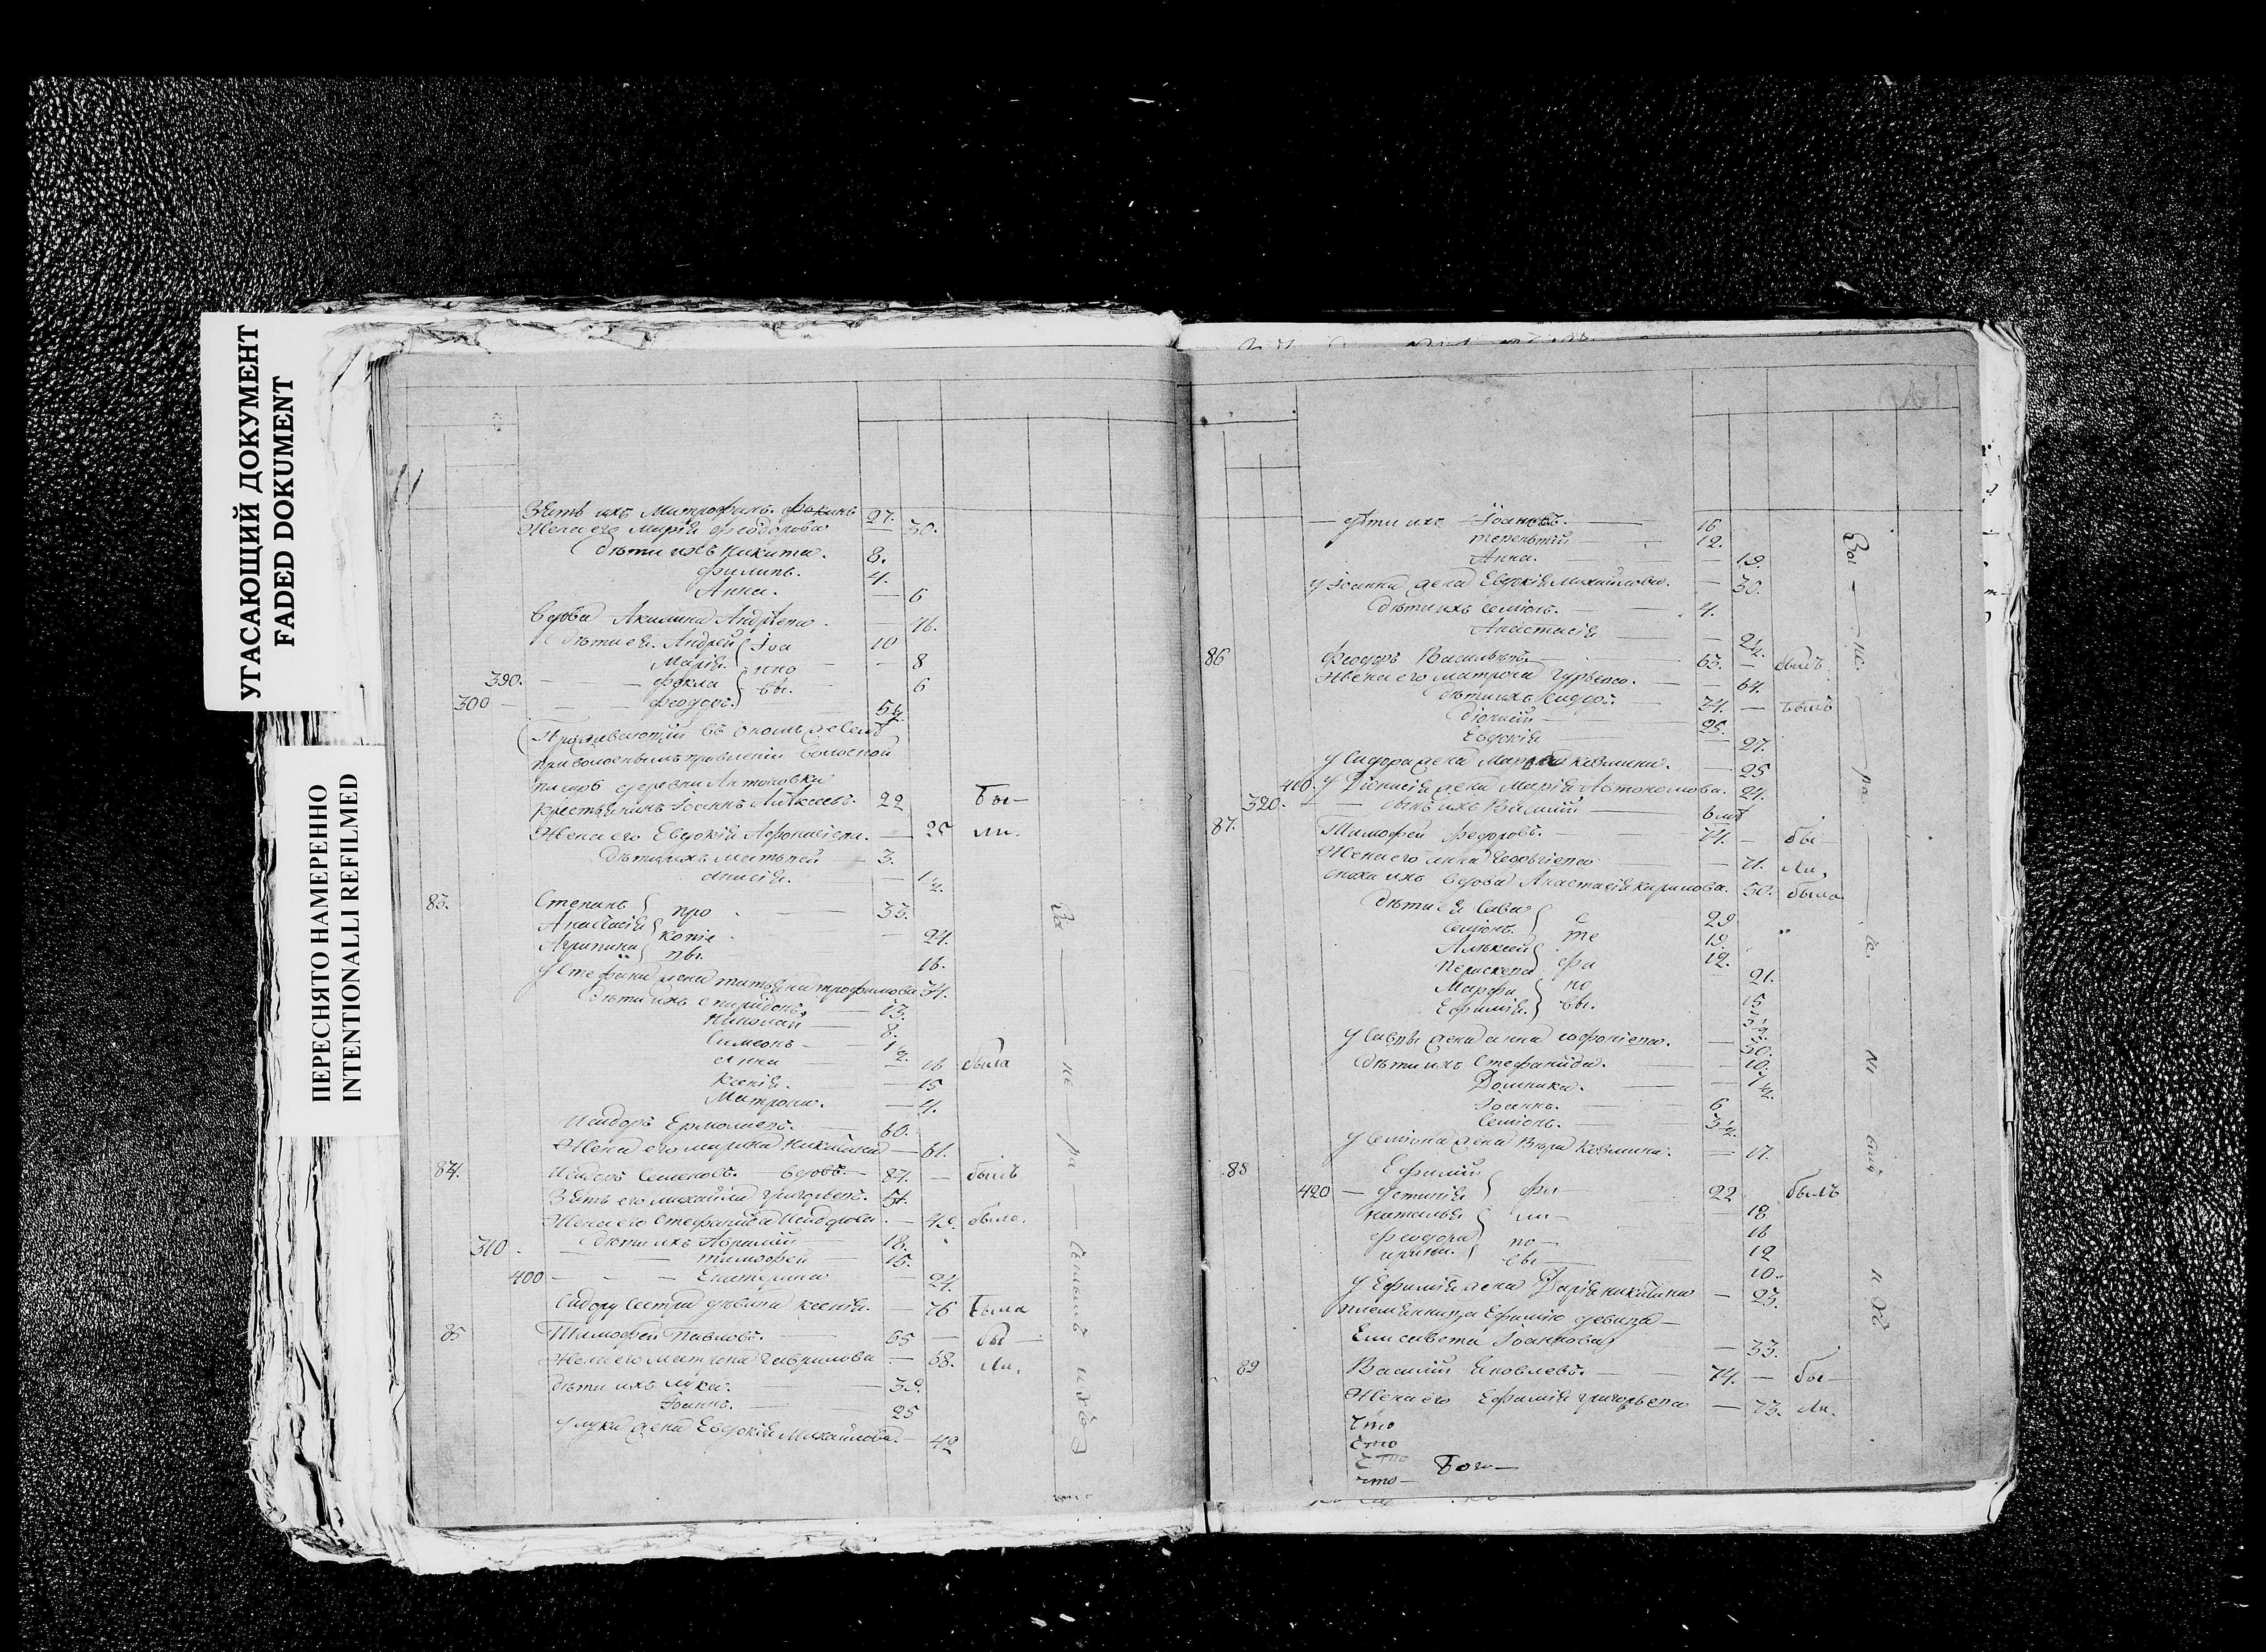 УГАСАЮЩИЙ ДОКУМЕНТ
FADED DOKUMENT
ПЕРЕСНЯТО НАМЕРЕННО
INTENTIONALLI REFILMED
Зять ихъ Митрофанъ 27.
Жена его Марія Феодорова — 30.
Дѣти ихъ Никита. 8.
Филипъ. 4.
Анна. — 6
Вдова Акилина Андрѣева. — 46.
Дѣти ея. Андрей Іоа 10
Марія. нно — 8
390. — — — Фекла вы. 6
300 — — — Феодоръ.
Проживающій въ ономъ же селѣ
при волосномъ правленіи волосной
писарь деревни Антоновки
крестьянинъ Іоаннъ Алѣксѣевъ. 22 Бы—
Жена его Евдокія Афонасіева. — 25 ли.
Дѣти ихъ Матвѣй — 3.
Анисія. — 1/2.
83. Стефанъ про — 33.
Анастасія копіе — 24.
Агрипина вы. 16.
У Стефана жена Татьяна Трофимова 34.
Дѣти ихъ Спиридонъ, — 13.
Николай — 8.
Симеонъ — 1/2
Анна — 16 была
Ксенія. — 15
Матрона. — 4.
Исидоръ Ермолаевъ. 60.
Жена его Марина Никитина — 61.
84. Исидоръ Семеновъ. вдовъ. 84. — былъ
Зять его Михаилъ Григорьевъ. 51.
Жена его Стефанида Исидорова. — 49. была.
Дѣти ихъ 18.
310 — — Тимофей 15.
400 — — — Екатерина — 24.
Сидору сестра дѣвица Ксенія. — 76 Была
85 Тимофей Павловъ. — 65 — бы —
Жена его Матрона Гаврилова — 68. ли.
Дѣти ихъ Лука. — 39.
Іоаннъ. — 25
У Луки жена Евдокія Михаилова. — 42
За — не — ра — ченьемъ ихъ
— Дѣти ихъ Іоаннъ. — 16
Терентій — 12.
Анна. — 19.
У Іоанна жена Евдокія Михаилова. — 30.
Дѣти ихъ Семіонъ. — 4.
Анастасія — 2 1/2.
86 Феодоръ Васильевъ — 63. — былъ.
Жена его Матрона Гурьева. — 64.
Дѣти ихъ Сидоръ. — 34. — Былъ
Діонисій — 25.
Евдокія — 27.
У Сидора жена Козмина. — 25
410. У Діонисія жена Марія Автономова. 24.
320. — сынъ ихъ Василій — 6 мѣ
87. Тимофей Федоровъ. — 74. — бы —
Жена его Анна — 71. ли,
сноха ихъ вдова Анастасія Кирилова. 50. была
Дѣти ея Сава С 29
Семіонъ. те 19.
Алѣксѣй 12.
Перасковья фа 21.
Марфа но 15
Ефимія. вы. 3 1/2.
У Савы жена Анна Софоніева. — 30.
Дѣти ихъ Стефанида. — 10.
Домника. — 7 1/2.
Іоаннъ. — 6
Семіонъ. — 3 1/2.
У Семіона жена Вѣра Козмина. — 17.
88 Ефимій
420 — Устинія фи 22 былъ
Наталья ли — 18
Феодора по — 16
Ирина. вы 12
10.
У Ефимія жена Дарія Никитина — 23.
племянница Ефимію дѣвица —
Елисавета Іоаннова — 33.
89 Василій Яковлевъ. — 74. — бы —
Жена его Ефимія Григорьева — 73. ли.
Что
Что
Что
что — Бого —
За — не — ра — че — ні — ихъ